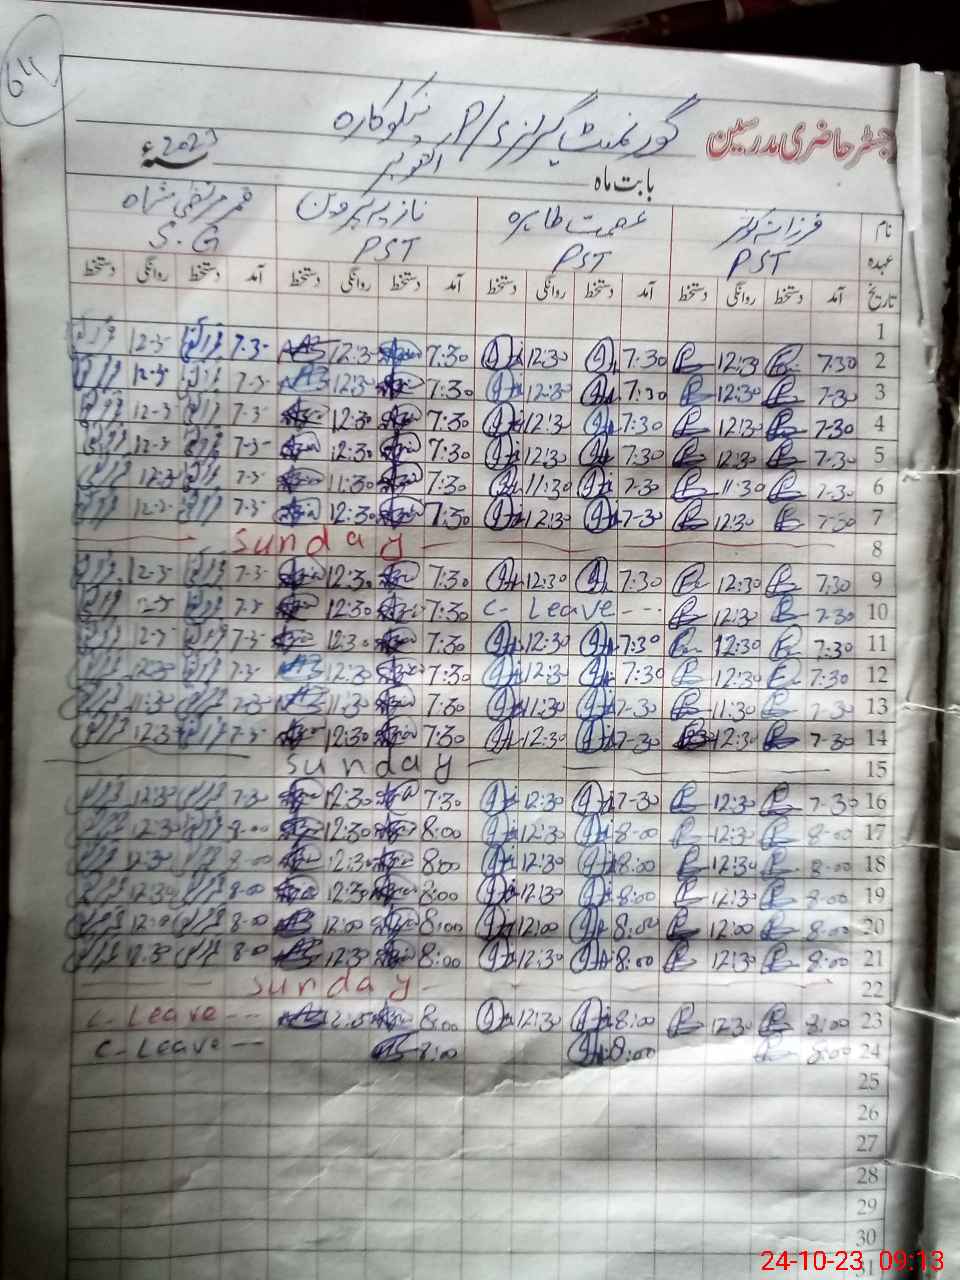 رجسٹر حاضری مدرسین گورنمنٹ گرلز P/
بابت ماہ اکتوبر 2023 سنہء
نام فرزانہ کوثر عصمت طاہرہ نازیہ پروین
عہدہ PST PST PST S.G
تاریخ آمد دستخط روانگی دستخط آمد دستخط روانگی دستخط آمد دستخط روانگی دستخط آمد دستخط روانگی دستخط
1
2 7:30 12:30 7:30 12:30 7:30 12:3 7.3 12-3
3 7-30 12:30 7:30 12:30 7:30 12:30 7-3
4 7-30 12:30 7:30 12:30 7:30 12:30 7-3 12-3
5 7-30 12:30 7:30 12:30 7:30 12:30 7-3 12-3
6 7-30 11:30 7-30 11:30 7:30 11:30 7-3 12:3
7 7-30 12:30 7-30 12:30 7:30 12:30 7-3
8 Sunday
9 7:30 12:30 7:30 12:30 7:30 12:30 7-3 12-3
10 7-30 12:30 C- Leave 7:30 12:30 7-3
11 7:30 12:30 7:30 12:30 7:30 12:30 7-3
12 7:30 12:30 7:30 12:30 7:30 12:30 7-3 12:30
13 7-30 11:30 7-30 11:30 7:30 11:30 7-3 11:30
14 7-30 12:30 7-30 12:30 7:30 12:30 7-3 12:3
15 Sunday
16 7-30 12:30 7-30 12:30 7:30 12:30 7:30 12:30
17 8-00 12:30 8-00 12:30 8:00 12:30 8-00 12:30
18 8-00 12:30 8:00 12:30 8:00 12:30 8-00 12:30
19 8-00 12:30 8:00 12:30 8:00 12:30 8-00 12:30
20 8-00 12:00 8:00 12:00 8:00 12:00 8-00 12:00
21 8:00 12:30 8:00 12:30 8:00 12:30 8-00 12:30
22 Sunday
23 8:00 12:30 8:00 12:30 8:00 C-Leave
24 8:00 8:00 8:00 C-Leave
25
26
27
28
29
30
31
24-10-23 09:13